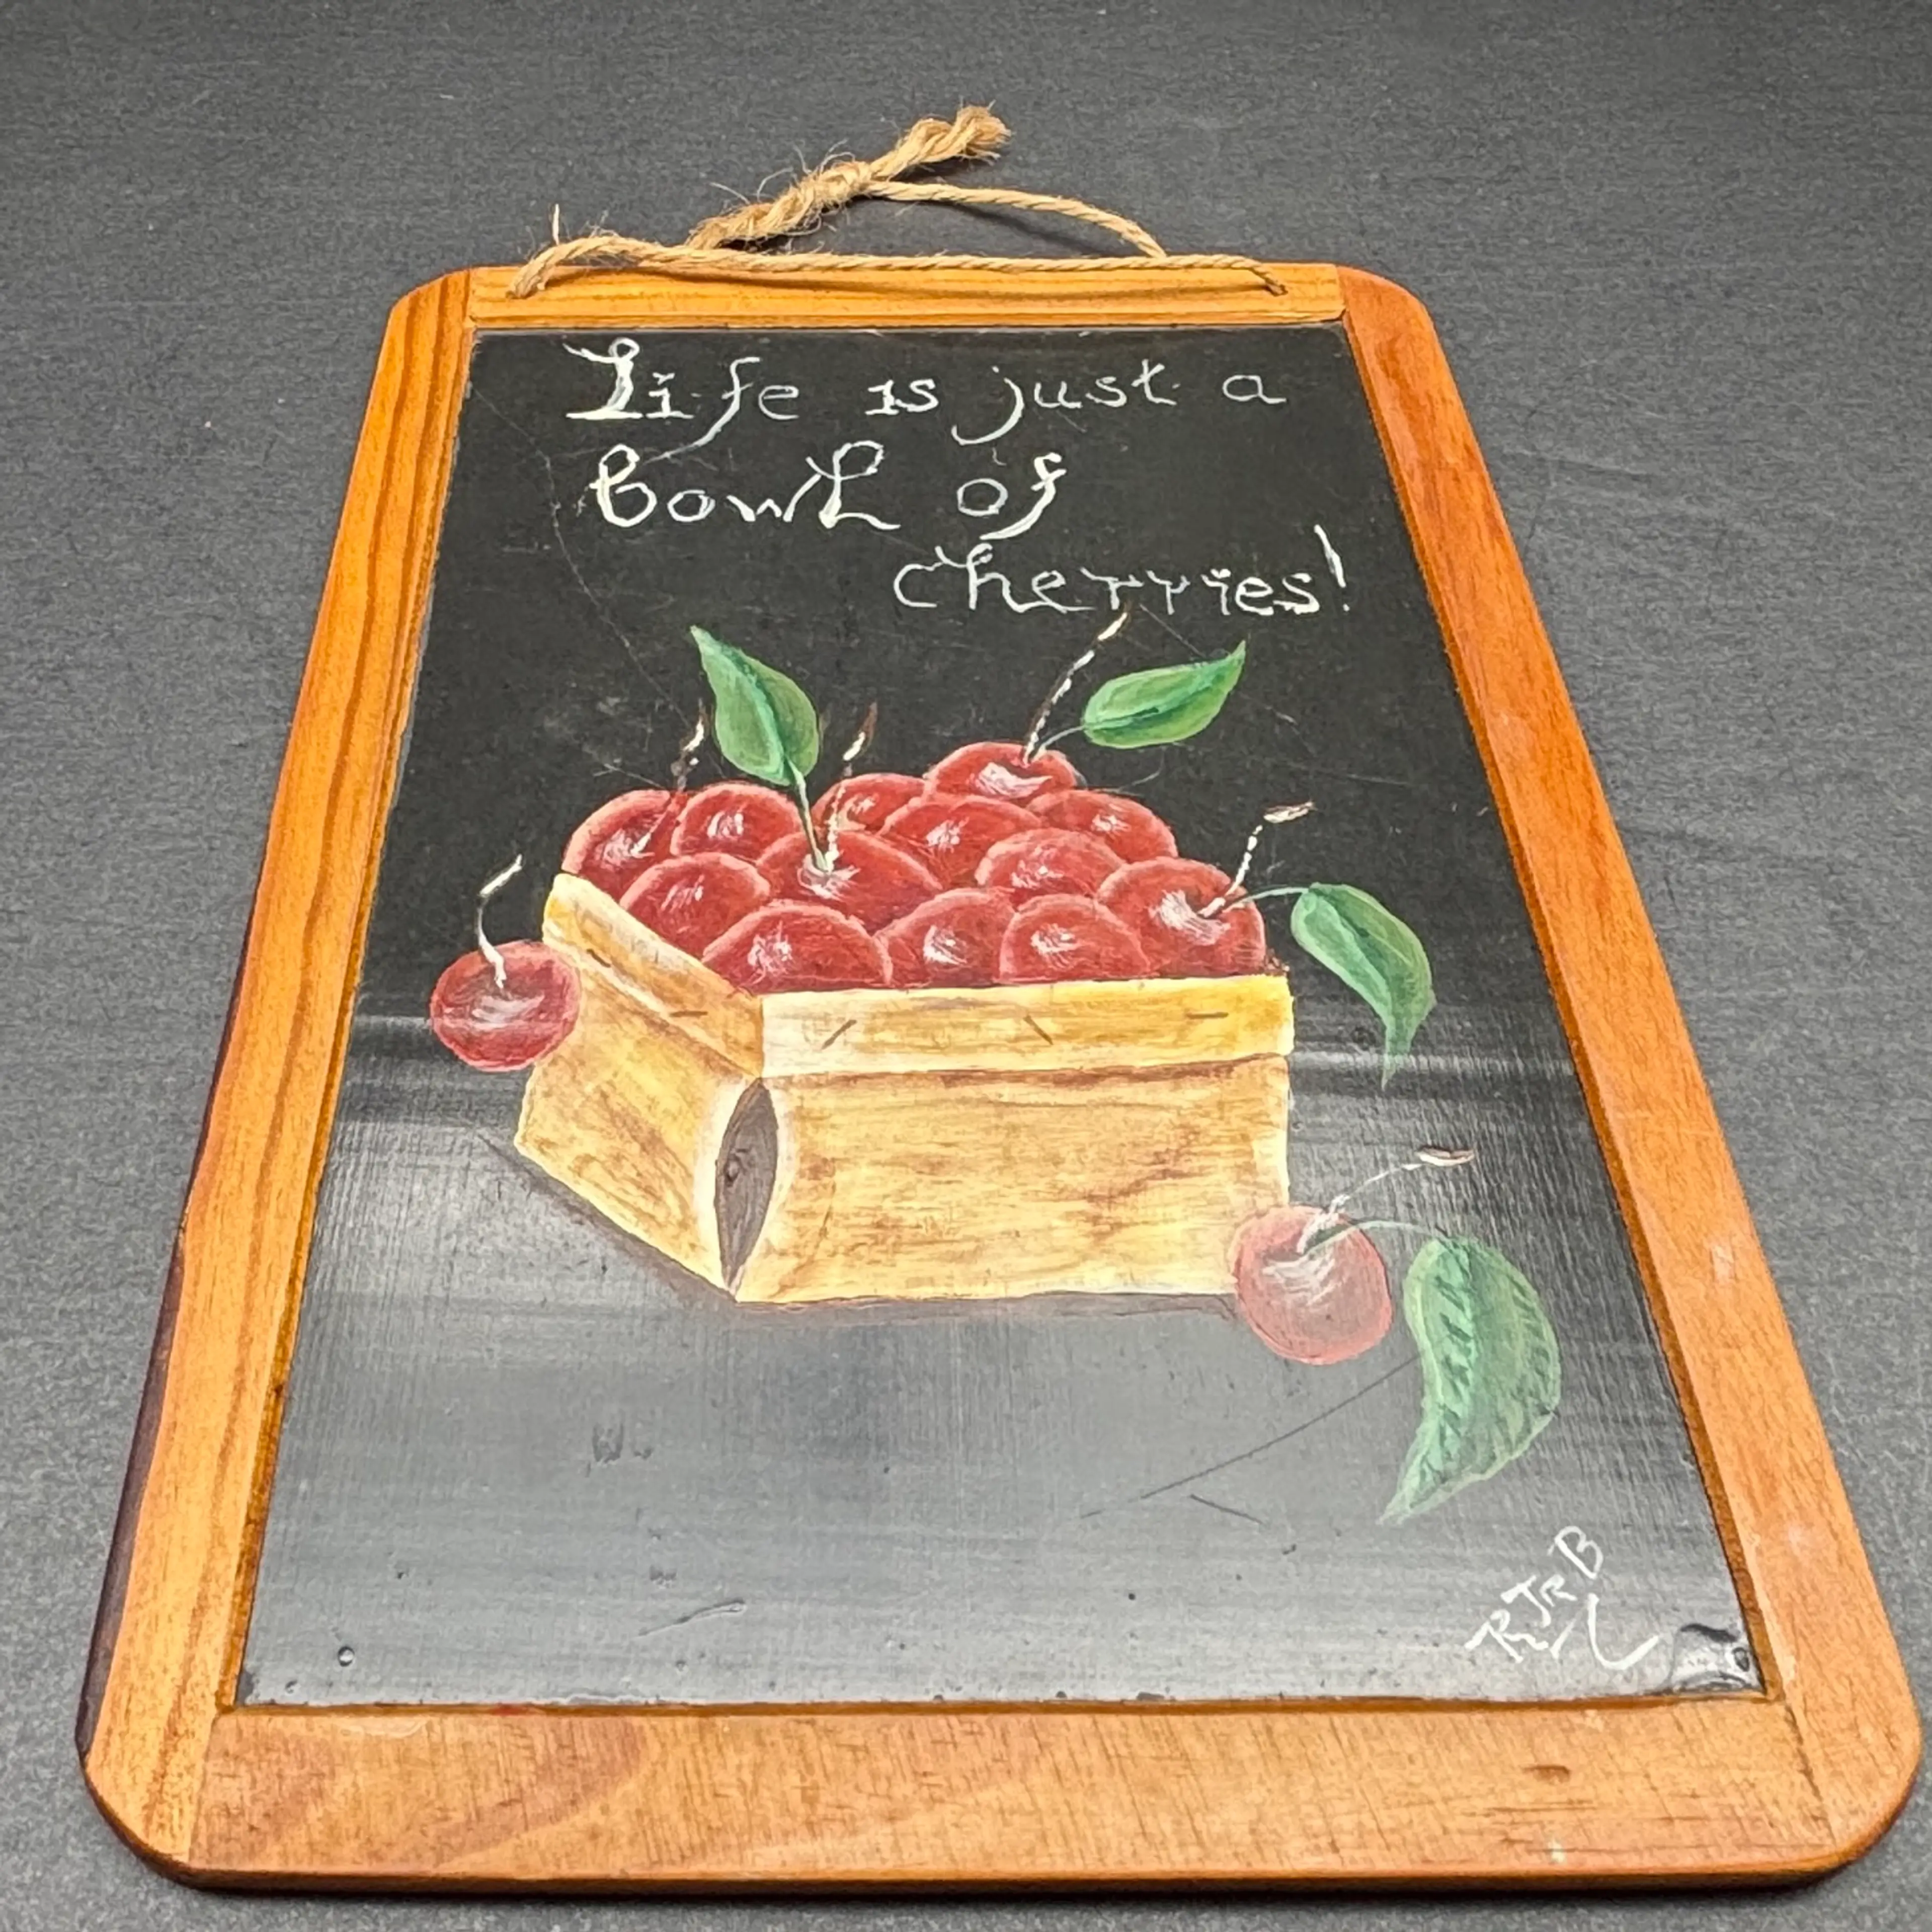 Life is just a
Bowl of
cherries!